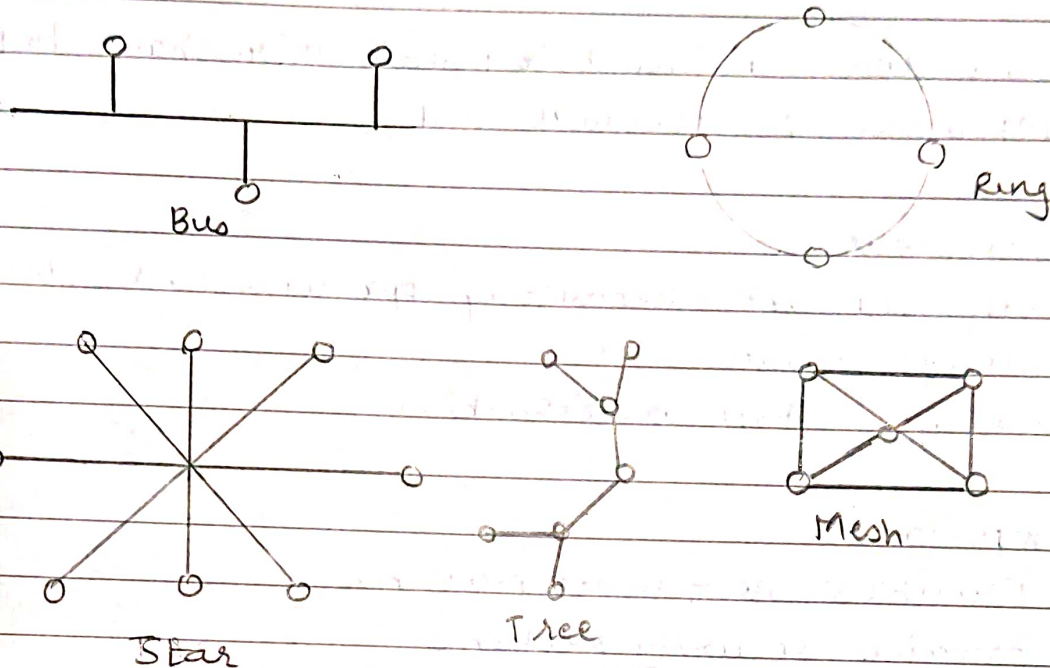 Bus
Ring
Star
Tree
Mesh